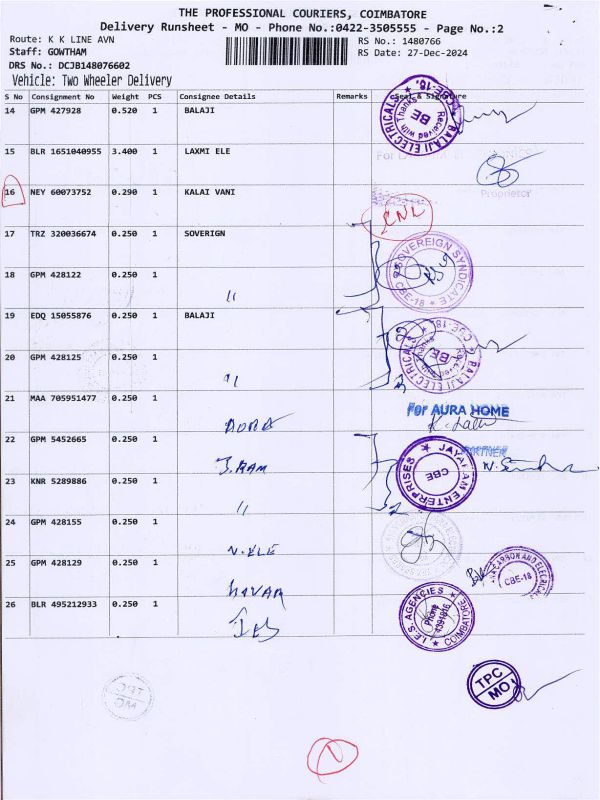 THE PROFESSIONAL COURIERS, COIMBATORE
Delivery Runsheet - MO - Phone No.:0422-3505555 - Page No.:2
Route: K K LINE AVN
RS No.: 1480766
Staff: GOWTHAM
RS Date: 27-Dec-2024
DRS No.: DCJB148076602
Vehicle: Two Wheeler Delivery
S No Consignment No Weight PCS Consignee Details Remarks Seal & Signature
14 GPM 427928 0.520 1 BALAJI
BALAJI ELECTRICALS CBE-18. Received with Thanks BE
15 BLR 1651040955 3.400 1 LAXMI ELE
Proprietor
16 NEY 60073752 0.290 1 KALAI VANI
CNL
17 TRZ 320036674 0.250 1 SOVERIGN
SOVEREIGN SYNDICATE CBE-18
18 GPM 428122 0.250 1 "
19 EDQ 15055876 0.250 1 BALAJI
BALAJI ELECTRICALS CBE-18. BE
20 GPM 428125 0.250 1 "
21 MAA 705951477 0.250 1 AURA
For AURA HOME
PARTNER
22 GPM 5452665 0.250 1 J. RAM
JAYARAM ENTERPRISES CBE
23 KNR 5289886 0.250 1 "
24 GPM 428155 0.250 1 N. ELE
25 GPM 428129 0.250 1
CBE-18
26 BLR 495212933 0.250 1 IES
I.E.S. AGENCIES COIMBATORE Phone
TPC
MO